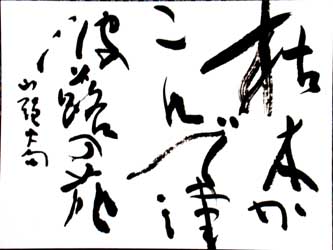 枯木か
こんで津
波蕗の花
山頭火句